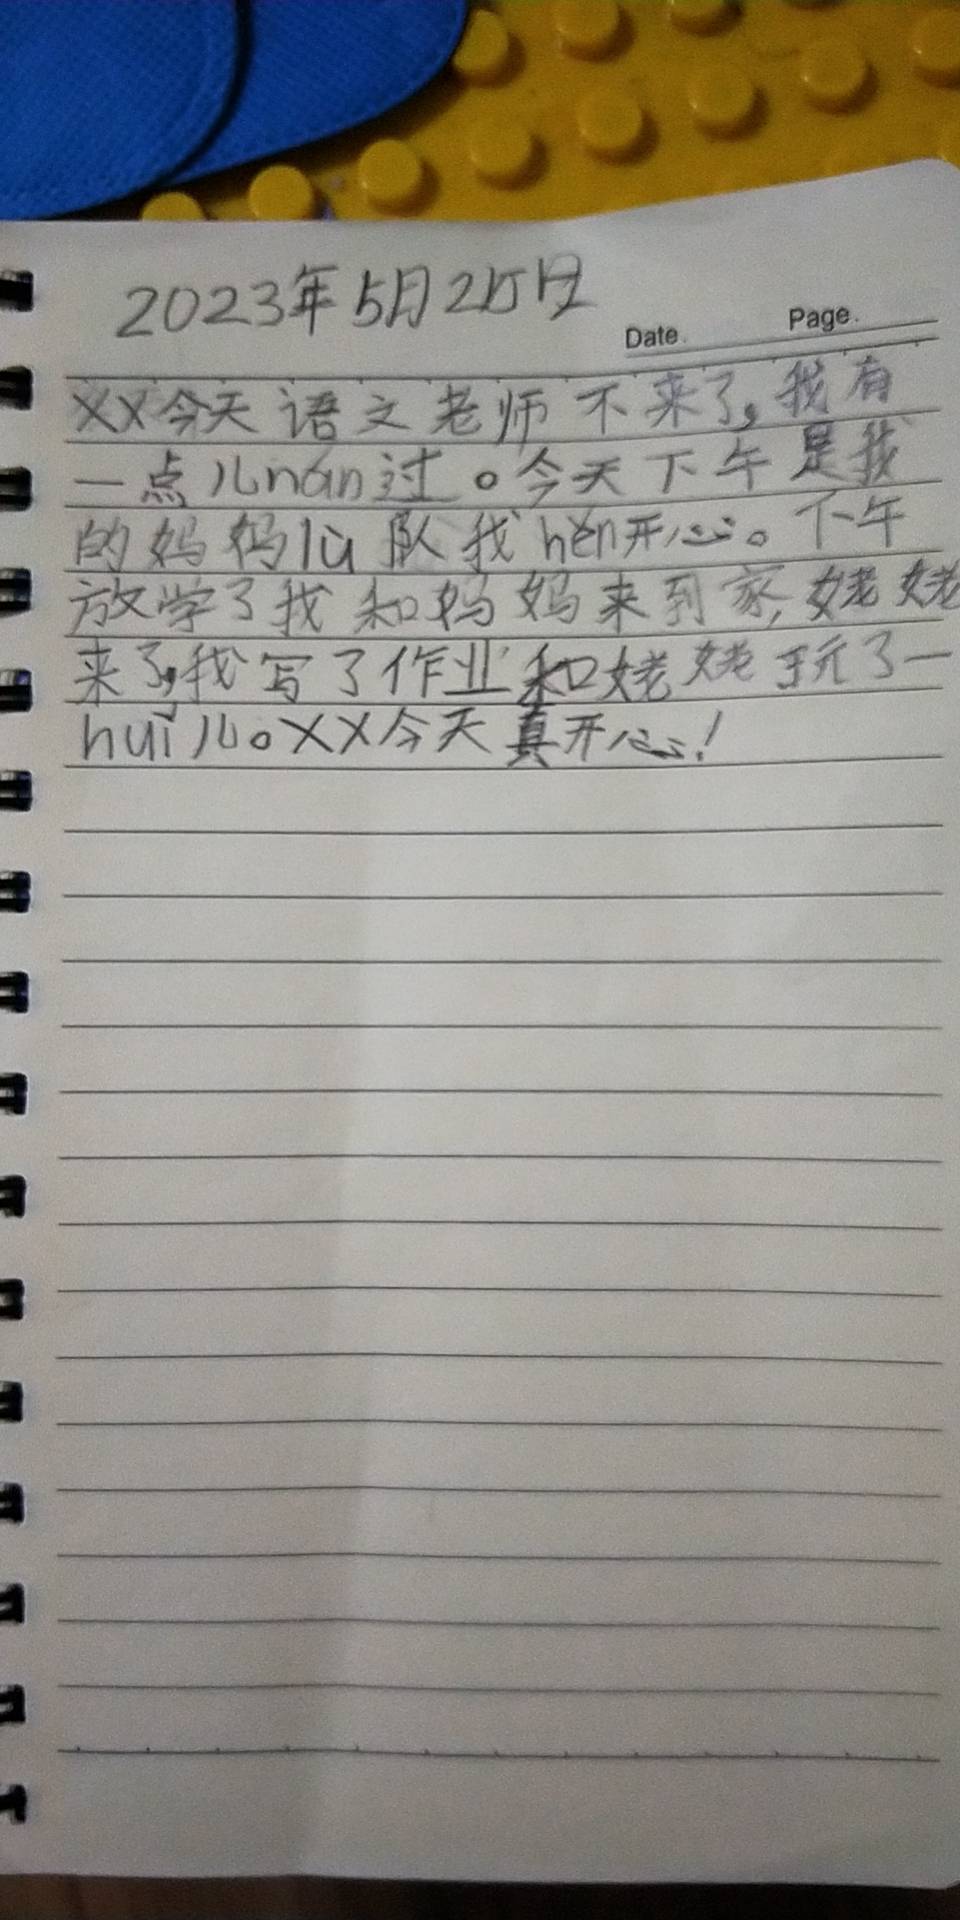 2023年5月25日
Date.
Page.
XX今天语文老师不来了,我有
一点儿nán过。今天下午是我
的妈妈lù队我hěn开心。下午
放学了我和妈妈来到家,姥姥
来了,我写了作业和姥姥玩了一
huǐ儿。XX今天真开心!